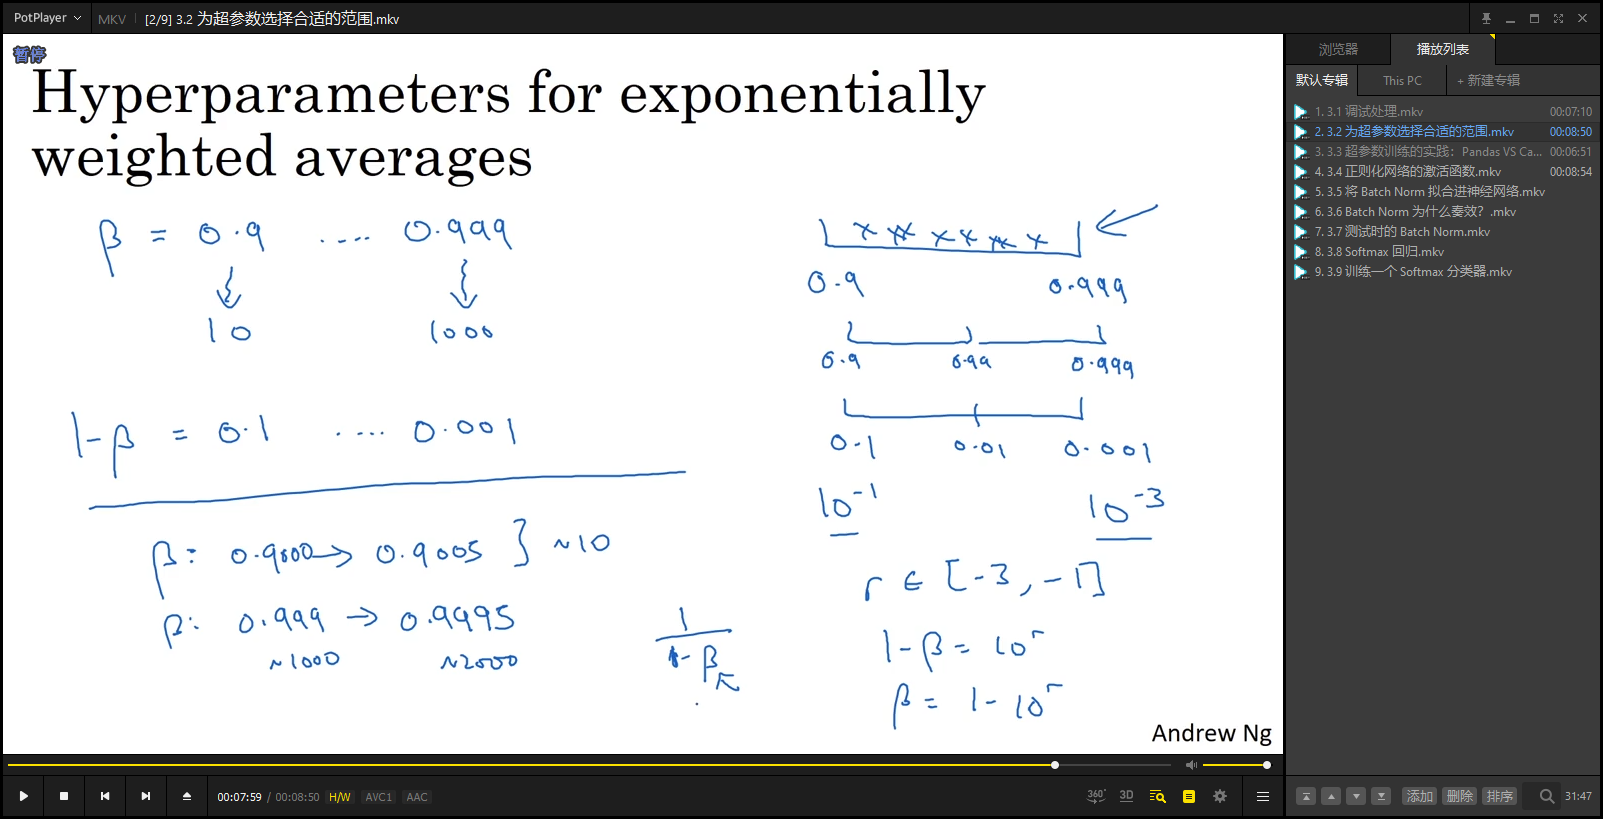 PotPlayer MKV [2/9] 3.2 为超参数选择合适的范围.mkv
暂停
Hyperparameters for exponentially
weighted averages
β = 0.9 .... 0.999
10 1000
1-β = 0.1 .... 0.001
β: 0.9000 → 0.9005 } ~10
β: 0.999 → 0.9995
~1000 ~2000
1
1-β
0.9 0.999
0.9 0.99 0.999
0.1 0.01 0.001
10⁻¹ 10⁻³
r ∈ [-3, -1]
1-β = 10ʳ
β = 1-10ʳ
Andrew Ng
00:07:59 / 00:08:50 H/W AVC1 AAC
360° 3D
浏览器 播放列表
默认专辑 This PC + 新建专辑
1. 3.1 调试处理.mkv 00:07:10
2. 3.2 为超参数选择合适的范围.mkv 00:08:50
3. 3.3 超参数训练的实践：Pandas VS Ca... 00:06:51
4. 3.4 正则化网络的激活函数.mkv 00:08:54
5. 3.5 将 Batch Norm 拟合进神经网络.mkv
6. 3.6 Batch Norm 为什么奏效？.mkv
7. 3.7 测试时的 Batch Norm.mkv
8. 3.8 Softmax 回归.mkv
9. 3.9 训练一个 Softmax 分类器.mkv
添加 删除 排序 31:47